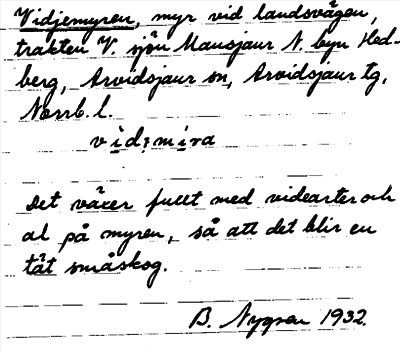 Vidjemyren, myr vid landsvägen,
trakten V. sjön Mausjaur N. byn Hed-
berg, Arvidsjaur sn, Arvidsjaur tg,
Norrb. l.
vid:mira
Det växer fullt med videarter och
al på myren, så att det blir en
tät småskog.
B. Nygren 1932.